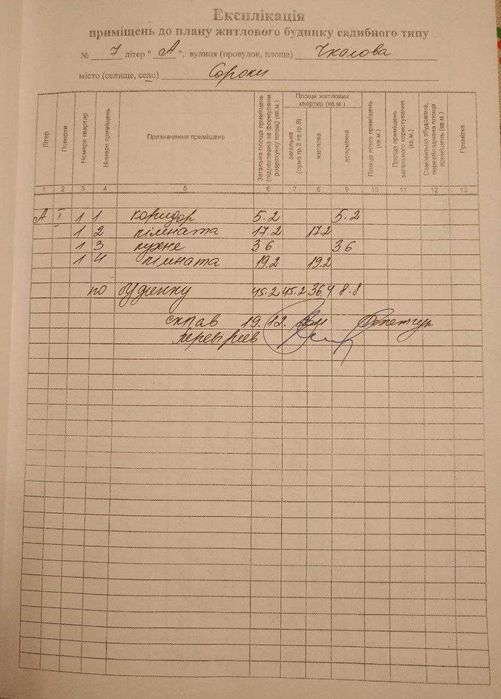 Експлікація
приміщень до плану житлового будинку садибного типу
№ 7 літер " А ", вулиця (провулок, площа) Чкалова
місто (селище, село) Сороки
Літер
Поверхи
Номери квартир
Номери приміщень
Призначення приміщень
Загальна площа приміщень (підраховано за формулами розрахунку площ) (кв.м.)
Площа житлових квартир (кв.м.)
загальна (сума гр.8 +гр.9)
житлова
допоміжна
Площа літніх приміщень (кв.м.)
Площа приміщень загального користування (кв.м.)
Самовільно збудована, переобладнана площа приміщень (кв.м.)
Примітка
1 2 3 4 5 6 7 8 9 10 11 12 13
А І 1 1 коридор 5.2 5.2
1 2 кімната 17.2 17.2
1 3 кухне 3.6 3.6
1 4 кімната 19.2 19.2
по будинку 45.2 45.2 36.4 8.8
склав 19.12.
перевірив